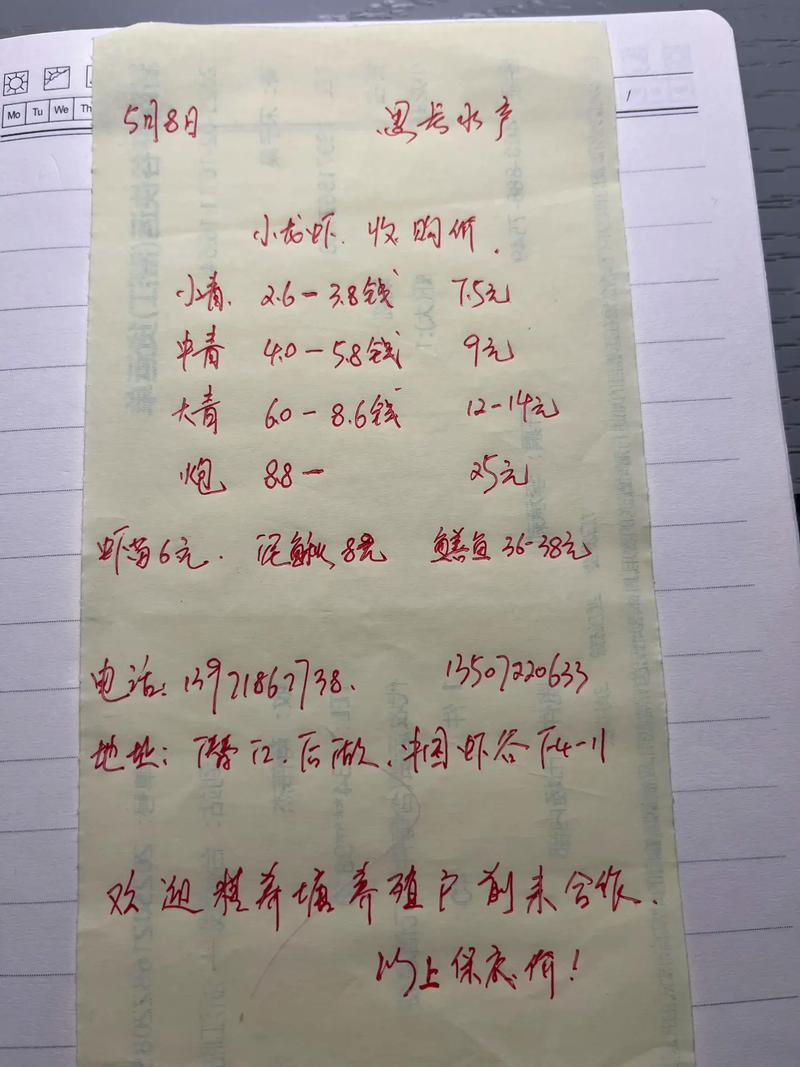 Mo Tu We Th
5月8日 思长水产
小龙虾. 收购价.
小青. 2.6-3.8钱 7.5元
中青 4.0-5.8钱 9元
大青 6.0-8.6钱 12-14元
炮 8.8- 25元
虾苗6元. 泥鳅8元 鳝鱼36-38元
电话: 13971867738. 13507220633
地址: 潜江. 后湖. 中国虾谷F4-11
欢迎精养塘养殖户前来合作.
以上保底价!